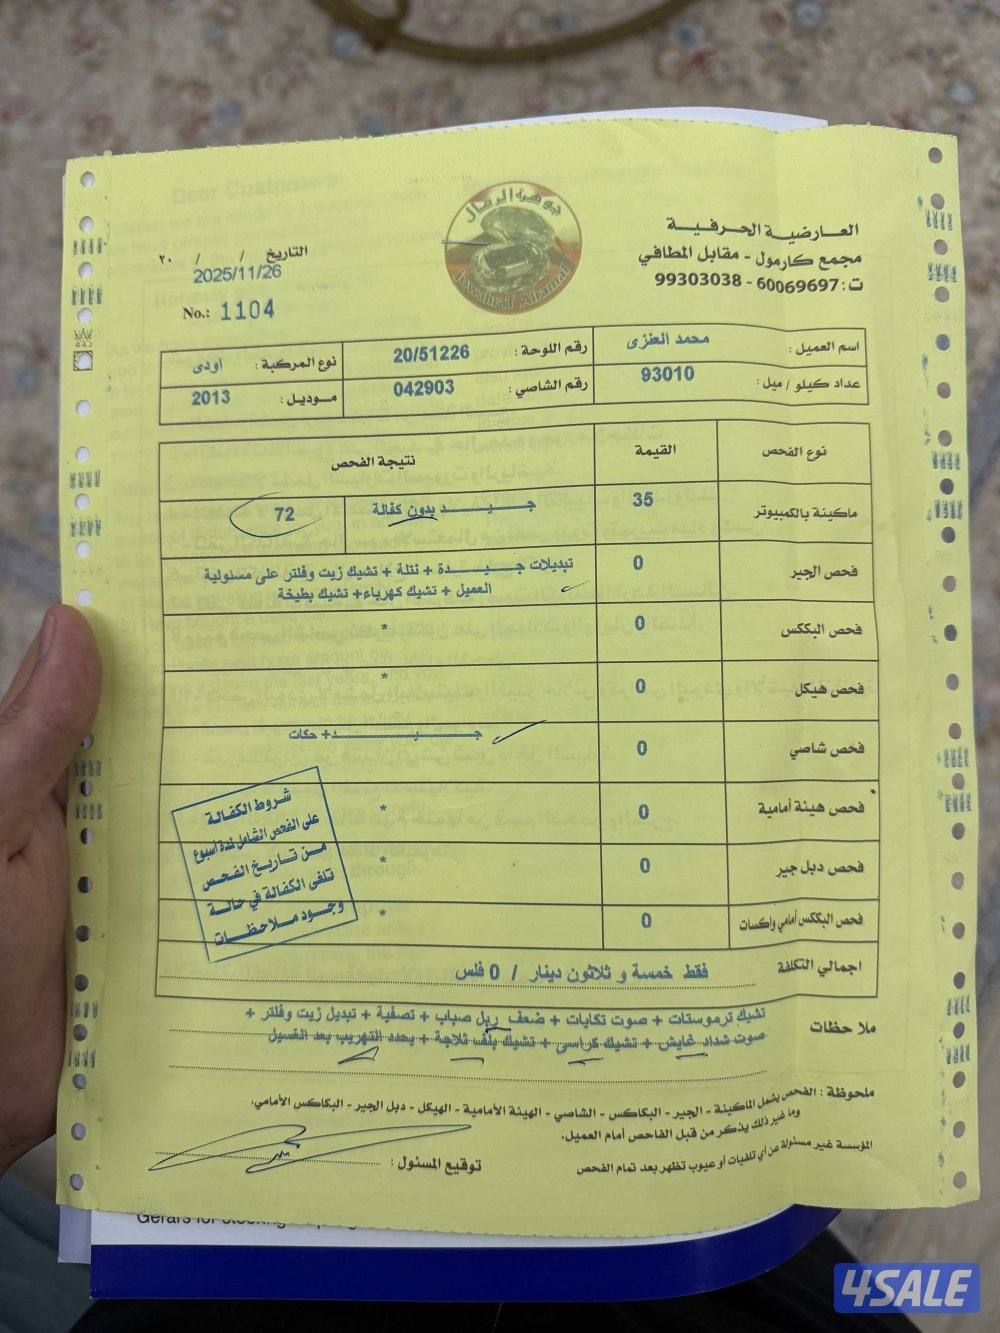 جوهرة الرمال
Jowahrat Alramal
العارضية الحرفية
مجمع كارمول - مقابل المطافي
ت: 60069697 - 99303038
التاريخ / / ٢٠
2025/11/26
No.: 1104
اسم العميل: محمد العنزى رقم اللوحة: 20/51226 نوع المركبة: اودى
عداد كيلو / ميل: 93010 رقم الشاصي: 042903 موديل: 2013
نوع الفحص القيمة نتيجة الفحص
ماكينة بالكمبيوتر 35 جيد بدون كفالة 72
فحص الجير 0 تبديلات جيدة + نتلة + تشيك زيت وفلتر على مسئولية
العميل + تشيك كهرباء+ تشيك بطيخة
فحص البككس 0 *
فحص هيكل 0 *
فحص شاصي 0 جيد+ حكات
فحص هيئة أمامية 0 *
فحص دبل جير 0 *
فحص البككس أمامي واكسات 0 *
شروط الكفالة
على الفحص الشامل لمدة أسبوع
من تاريخ الفحص
تلغى الكفالة في حالة
وجود ملاحظات
اجمالي التكلفة فقط خمسة و ثلاثون دينار / 0 فلس
ملاحظات تشيك ترموستات + صوت تكايات + ضعف ربل صباب + تصفية + تبديل زيت وفلتر +
صوت شداد عايش + تشيك كراسى + تشيك بلف ثلاجة + يحدد التهريب بعد الغسيل
ملحوظة: الفحص يشمل الماكينة - الجير - البكاكس - الشاصي - الهيئة الأمامية - الهيكل - دبل الجير - البكاكس الأمامي.
وما غير ذلك يذكر من قبل الفاحص أمام العميل.
المؤسسة غير مسئولة عن أي تلفيات أو عيوب تظهر بعد تمام الفحص
توقيع المسئول:
4SALE